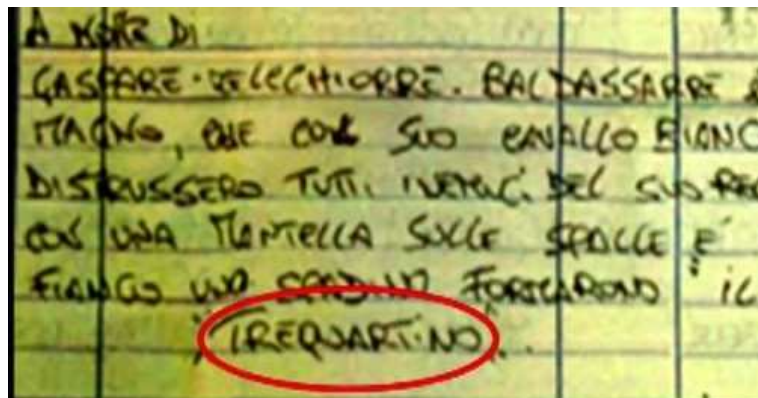 A NOME DI
GASPARE. MELCCHIORRE. BALDASSARRE
MAGNO, CHE COL SUO CAVALLO BIANCO
DISTRUSSERO TUTTI I NEMICI DEL SUO REG
CON UNA MANTELLA SULLE SPALLE E
FIANCO UNO SPADINO FORMARONO "IL
TREQUARTINO"..